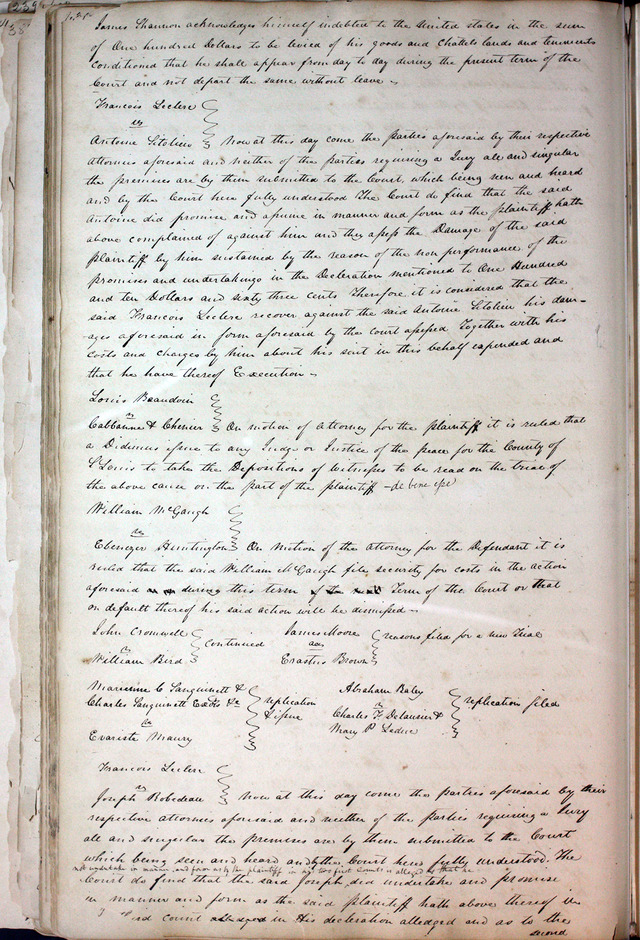 James Shannon acknowledges himself indebted to the United States in the sum
of One hundred Dollars to be levied of his goods and Chattels lands and tenements
conditioned that he shall appear from day to day during the present term of the
Court and not depart the same without leave -
Francois Leclerc
vs
Antoine Sitolin Now at this day come the Parties aforesaid by their respective
attornies aforesaid and neither of the Parties requiring a Jury all and singular
the premises are by them submitted to the Court, which being seen and heard
and by the Court here fully understood The Court do find that the said
Antoine did promise and assume in manner and form as the plaintiff hath
above complained of against him and they assess the Damage of the said
plaintiff by him sustained by the reason of the non performance of the
promises and undertakings in the Decleration mentioned to One Hundred
and ten Dollars and sixty three cents Therefore it is considered that the
said Francois Leclerc recover against the said Antoine Sitolin his dam-
ages aforesaid in form aforesaid by the court assessed Together with his
costs and charges by him about his suit in this behalf expended and
that he have thereof Execution -
Louis Beaudoin
vs
Cabbanne & Chenier On motion of Attorney for the plaintiff it is ruled that
a Didimus issue to any Judge or Justice of the peace for the County of
St Louis to take the Depositions of Witnesses to be read on the trial of
the above cause on the part of the plaintiff - de bene esse
William McGaugh
vs
Ebenezer Huntington On motion of the Attorney for the Defendant it is
ruled that the said William McGaugh file security for costs in the action
aforesaid during this term Term of the Court or that
on default thereof his said action will be dismissed -
John Cromwell
vs continued
William Bird
James Moore
ads reasons filed for a new Trial
Erastus Brown
Marianne C Sanguinett &
Charles Sanguinett Exors &c replication
vs & issue
Evariste Maury
Abraham Raley
vs replication filed
Charles F Delausier &
Mary P Leduc
Francois Leclerc
vs
Joseph Robedeau Now at this day come the Parties aforesaid by their
respective attornies aforesaid and neither of the Parties requiring a Jury
all and singular the premises are by them submitted to the Court
which being seen and heard and by the Court here fully understood. The
not undertake in manner and form as the plaintiff in his two first Counts is alledged as that he
Court do find that the said Joseph did undertake and Promise
in manner and form as the said plaintiff hath above thereof in
3rd count in His decleration alledged and as to the
second